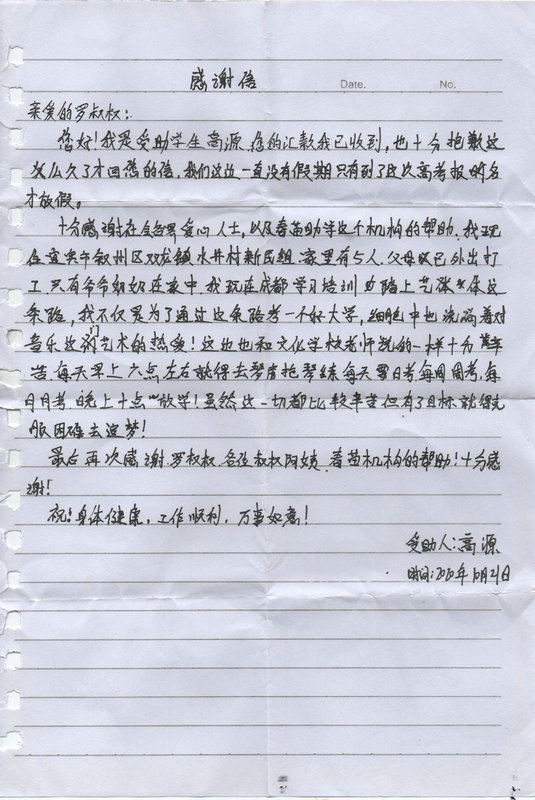 感谢信
Date. No.
亲爱的罗叔叔：
您好！我是受助学生高源，您的汇款我已收到，也十分抱歉这
么久了才回您的信，我们这边一直没有假期只有到了这次高考报名
才放假。
十分感谢社会各界爱心人士，以及春苗助学这个机构的帮助，我现
住宜宾市叙州区双龙镇水井村新民组，家里有5人，父母已外出打
工，只有爷爷奶奶在家中，我现在成都学习培训，踏上艺张体这
条路，我不仅是为了通过这条路考一个好大学，细胞中也流淌着对
音乐这门艺术的热爱！这边也和文化学校老师说的一样十分
苦，每天早上六点左右就得去琴房抢琴练，每天日考，每周周考，每
月月考，晚上十点放学！虽然这一切都比较辛苦但有了目标，就得克
服困难去追梦！
最后再次感谢罗叔叔，各位叔叔阿姨，春苗机构的帮助！十分感
谢！
祝：身体健康，工作顺利，万事如意！
受助人：高源
时间：2020年10月21日